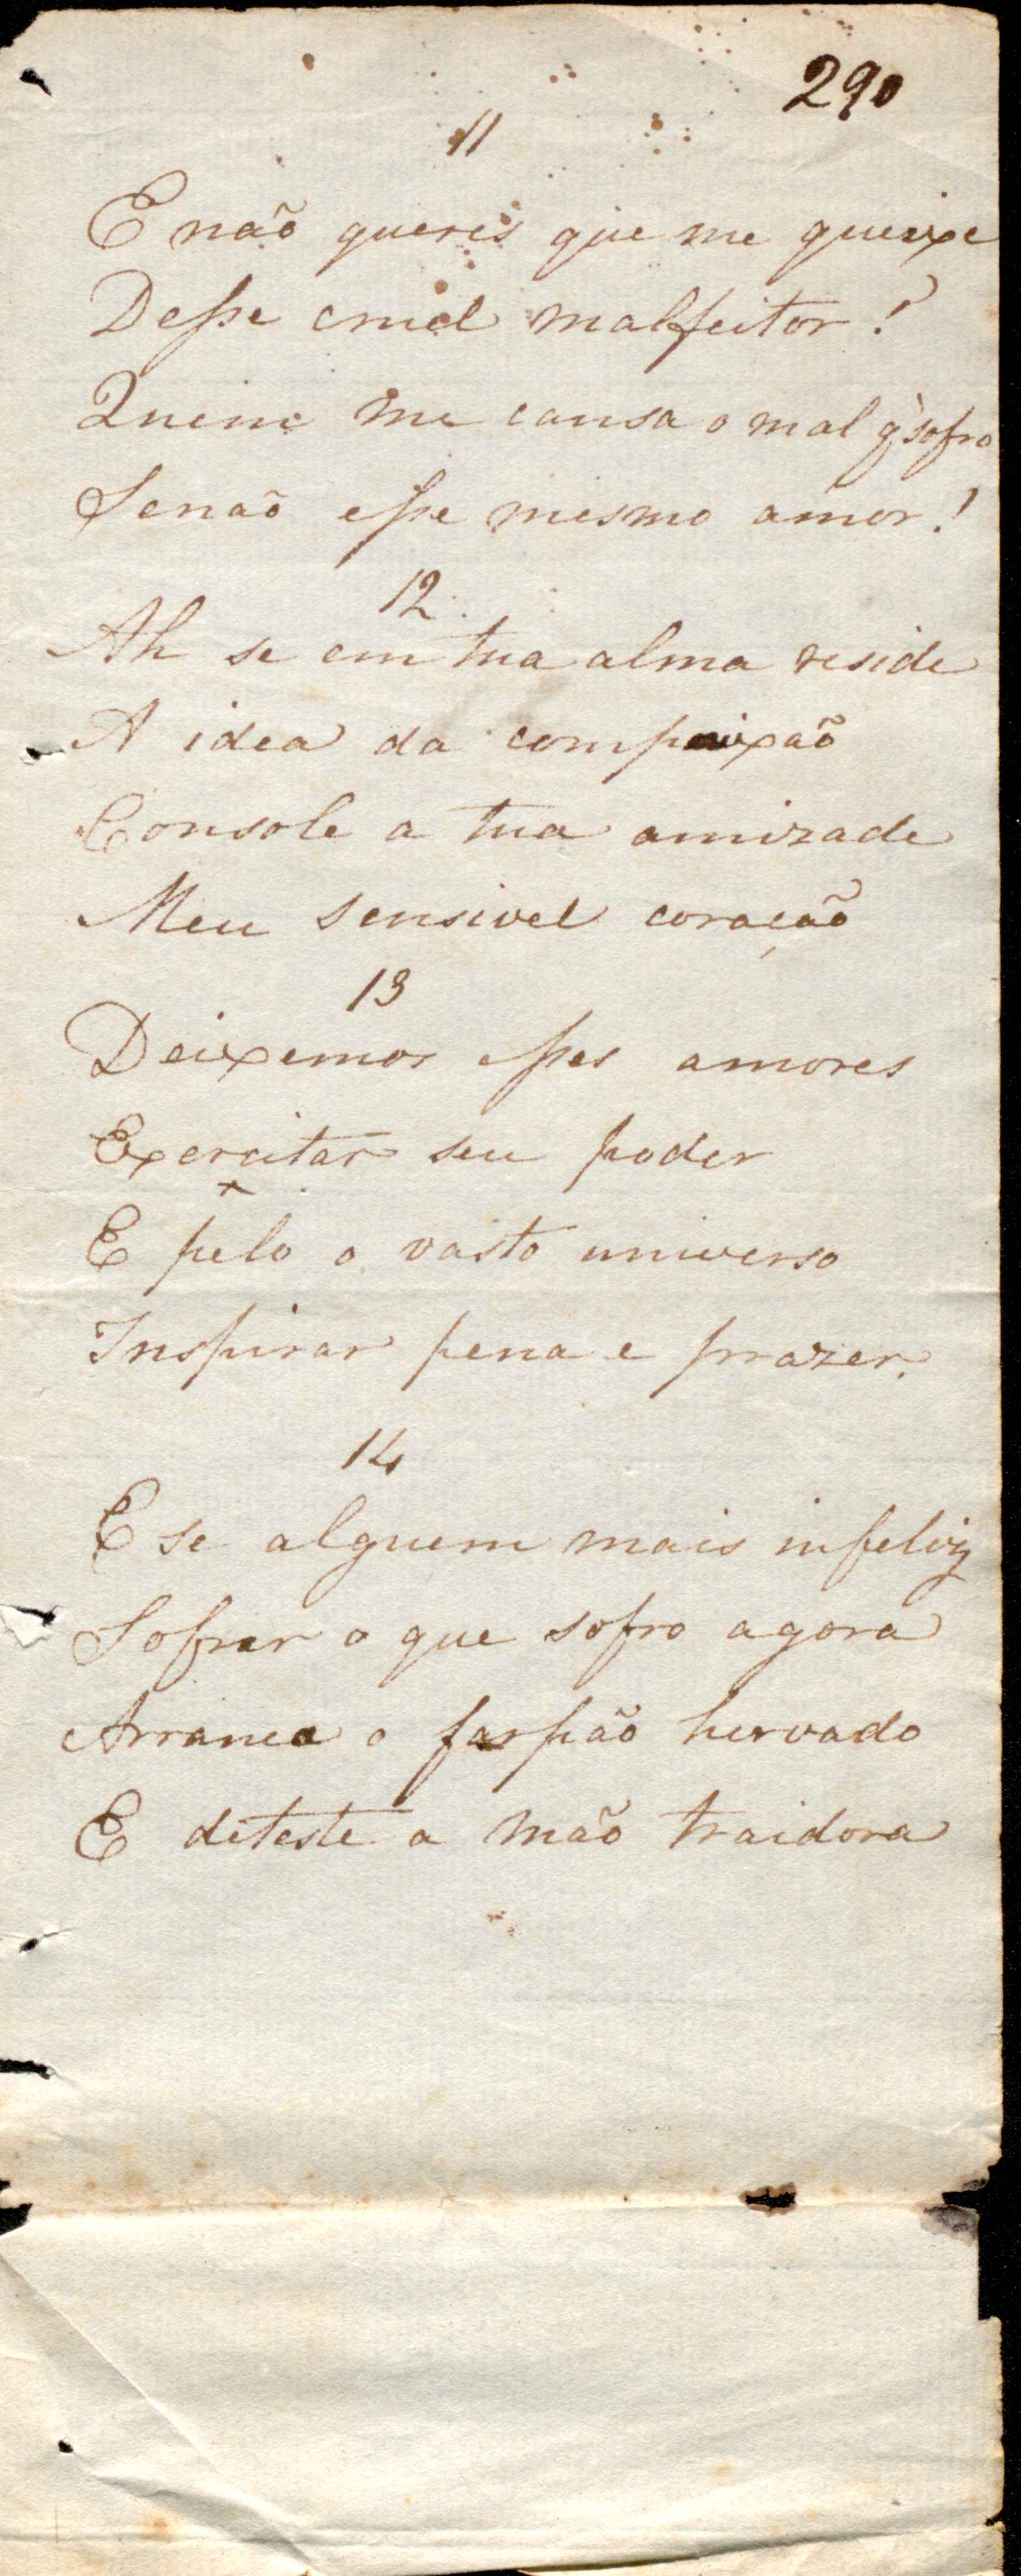 290
11
E não queres que me queixe
Desse cruel malfeitor!
Quem me causa o mal q̀ sofro
Senão esse mesmo amor!
12
Ah se em tua alma reside
A idea da compaixão
Console a tua amizade
Meu sensivel coração
13
Deixemos esses amores
Exercitar seu poder
E pelo o vasto universo
Inspirar pena e prazer.
14
E se alguem mais infeliz
Sofrer o que sofro agora
Arranca o farpão hervado
E deteste a mão traidora